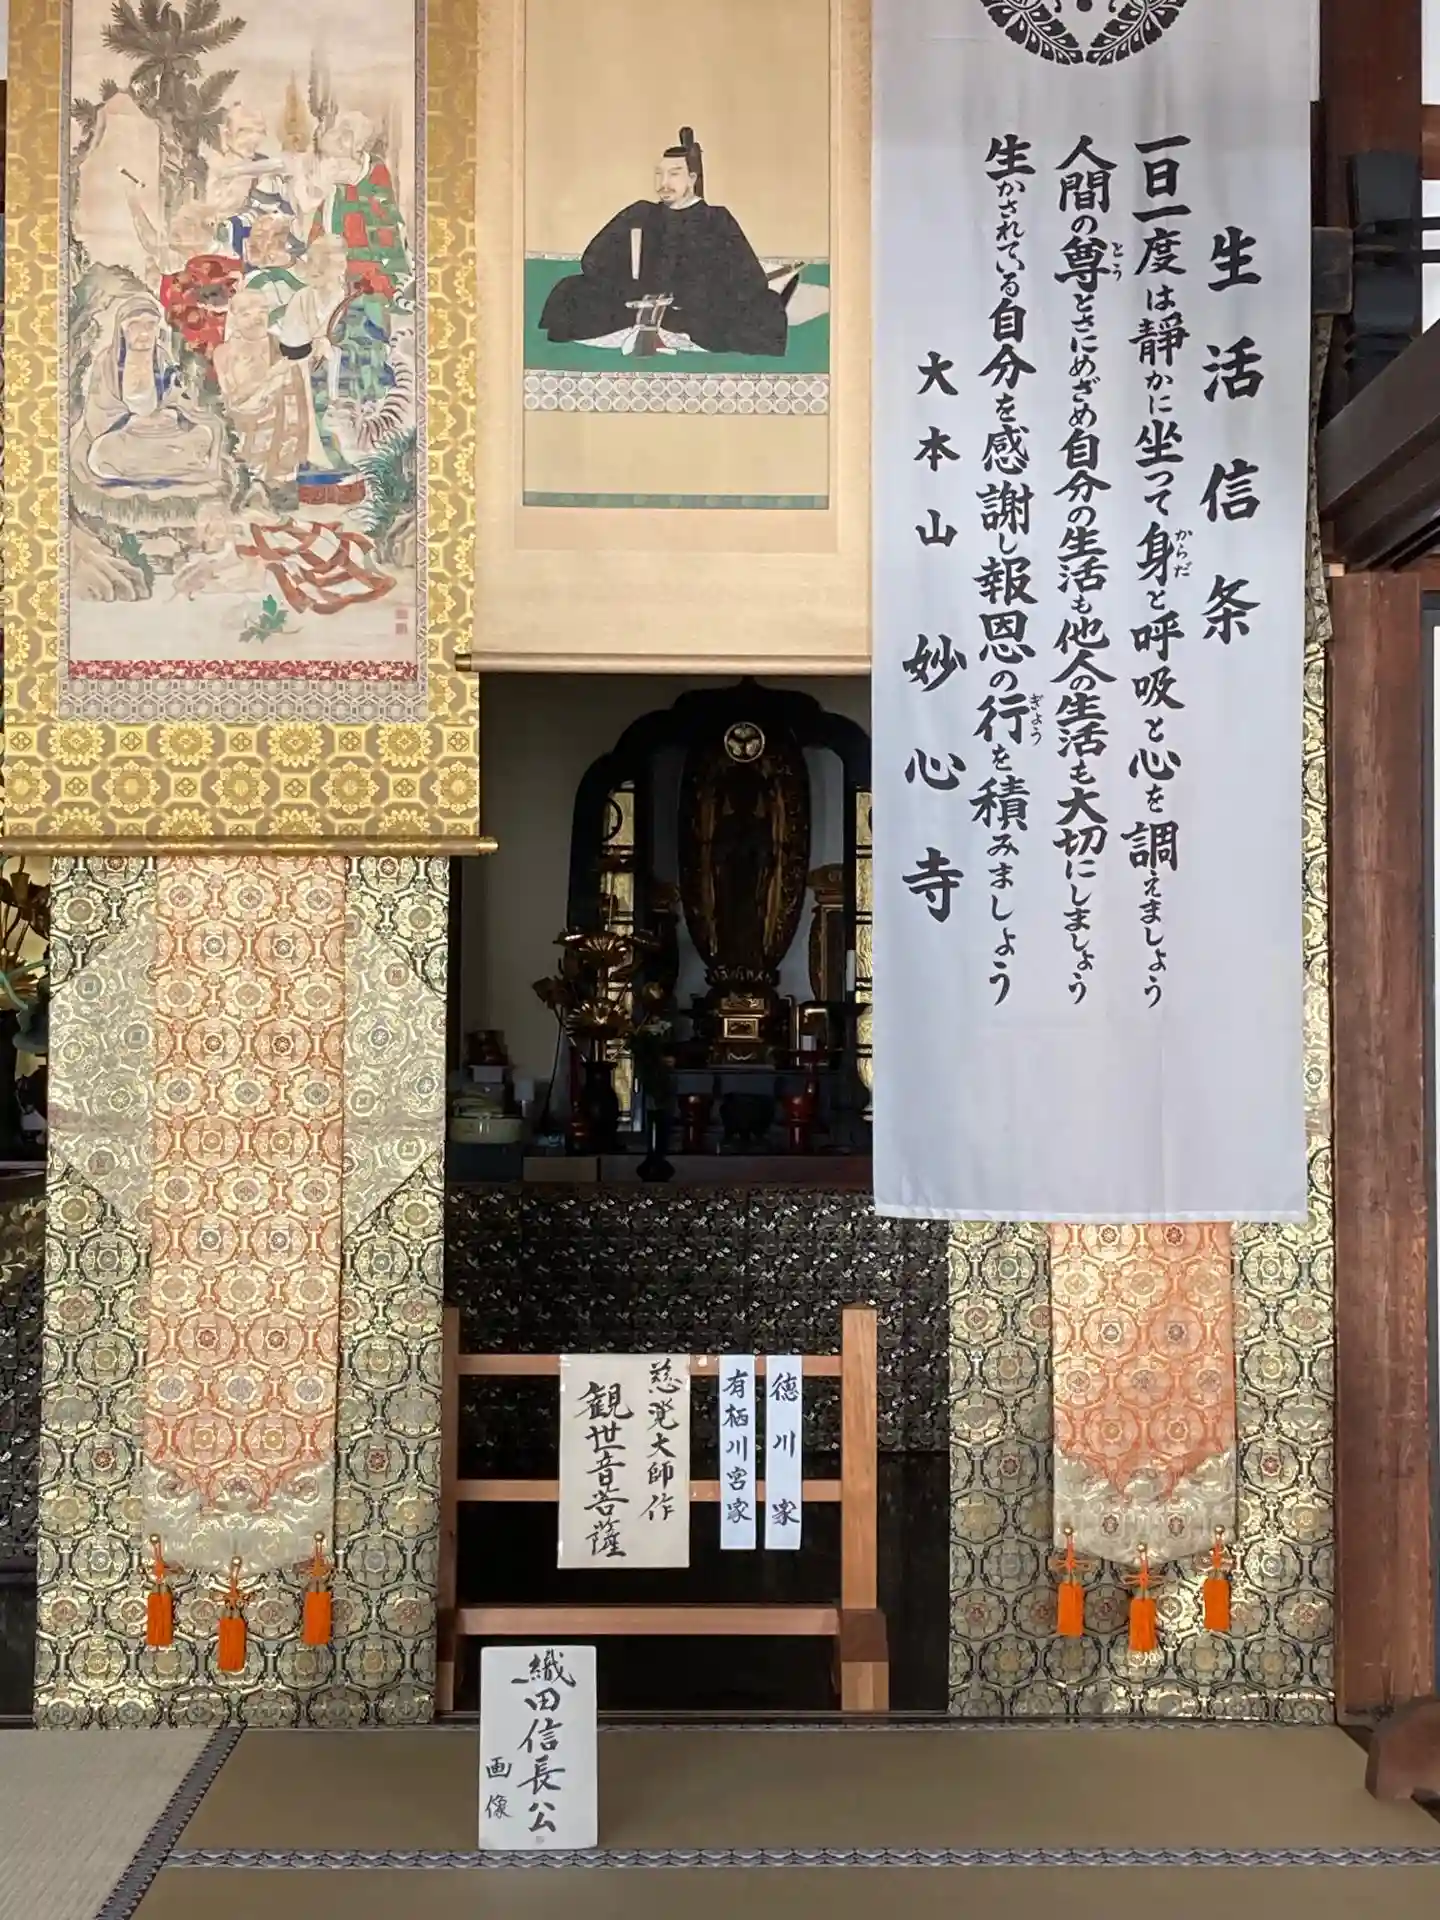 生活信条
一日一度は静かに坐って身と呼吸と心を調えましょう
からだ
人間の尊とさにめざめ自分の生活も他人の生活も大切にしましょう
とう
生かされている自分を感謝し報恩の行を積みましょう
ぎょう
大本山妙心寺
徳川家
有栖川宮家
慈覚大師作
観世音菩薩
織田信長公
画像